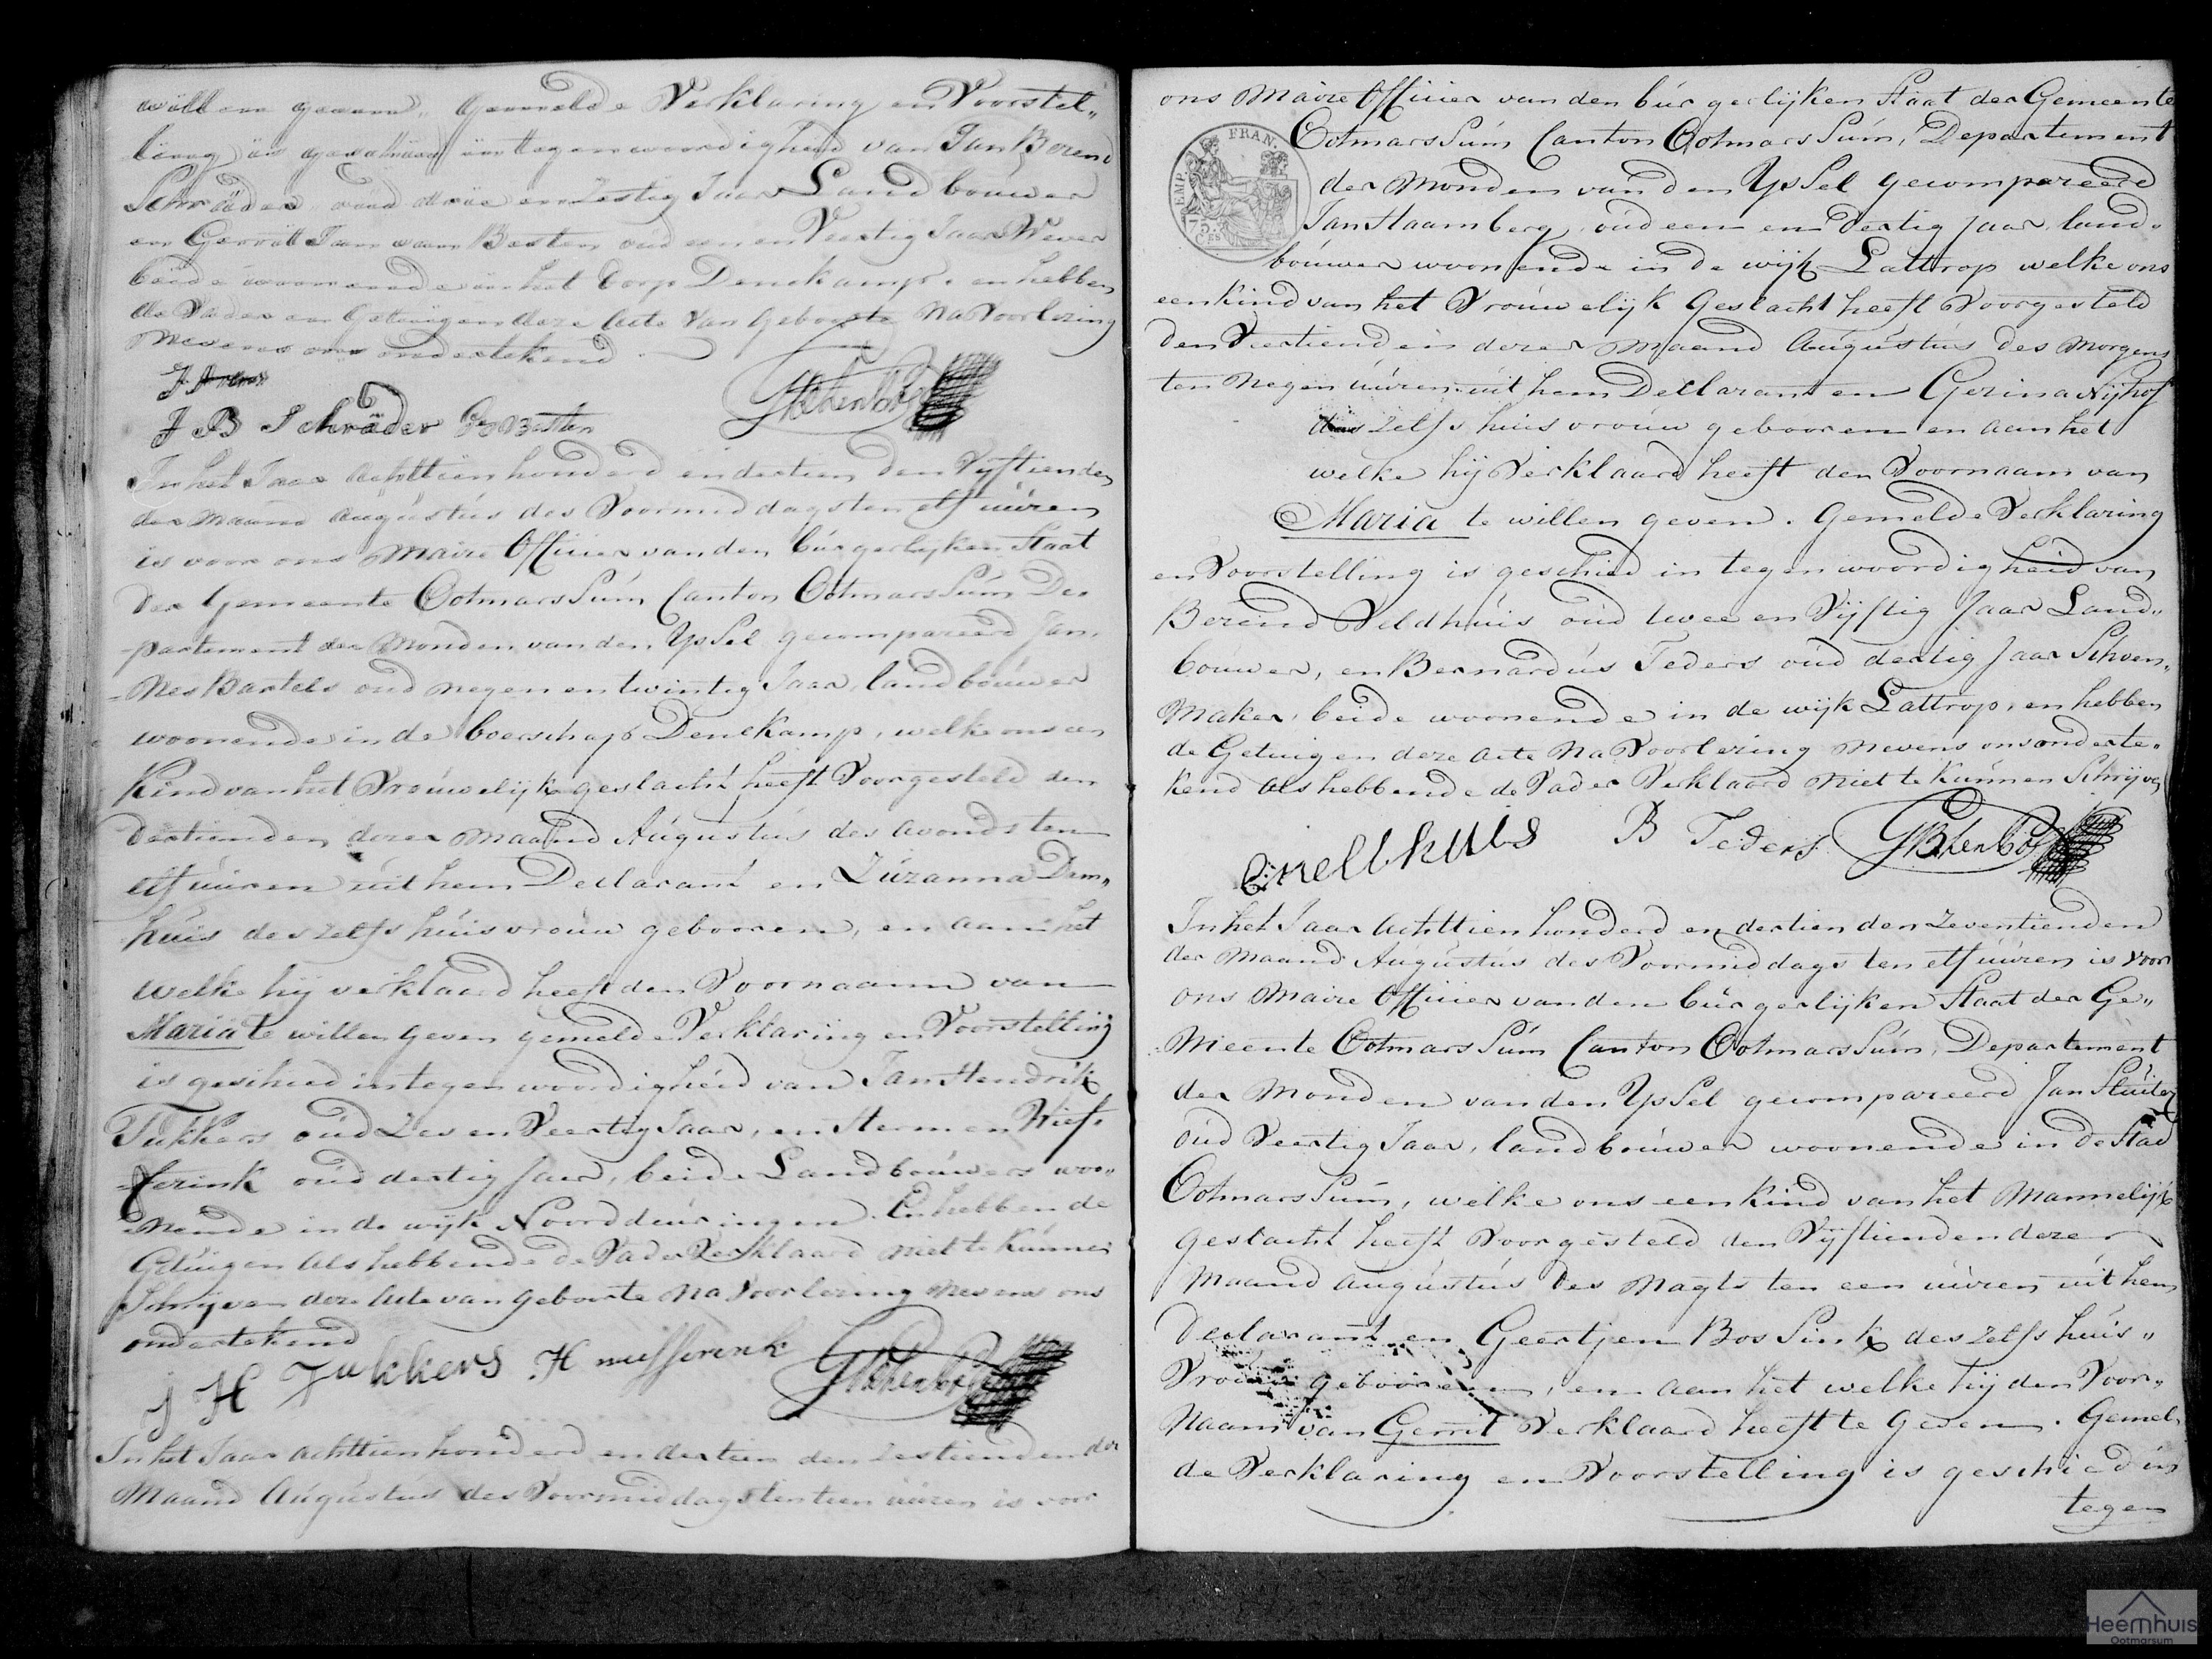 willen geeven, Gemelde Verklaring en Voorstel„
ling is geschied in tegenwoordigheid van Jan Berend
Schräder oud drie en zestig Jaar Landbouwer
en Gerrit Jan van Besten oud een en Veertig Jaar Wever
beide woonende in het Dorp Denekamp. en hebben
de Vader en Getuigen deze Acte van Geboorte Na Voorlezing
Nevens ons ondertekend
J B Schräder
In het Jaar Achttien honderd en dertien den Vyftienden
der Maand Augustus des Voormiddags ten elf uuren
is voor ons Maire Officier van den burgerlyken Staat
der Gemeente OotmarsSum Canton OotmarsSum De„
partement der Monden van den YsSel gecompareerd Jan„
nes Bartels oud negen en twintig Jaar, landbouwer
woonende in de boerschap Denekamp, welke ons een
Kind van het Vrouwelijk geslacht heeft Voorgesteld den
dertienden dezer Maand Augustus des avonds ten
elf uuren uit hem Declarant en Zuzanna Dam„
huis deszelfs huisvrouw gebooren, en aan het
welke hij verklaard heeft den Voornaam van
Maria te willen geven gemelde Verklaring en Voorstelling
is geschied in tegenwoordigheid van Jan Hendrik
Tukkers oud Zes en Veertig Jaar, en Hermen Nief„
ferink oud dertig Jaar, beide Landbouwers woo„
nende in de wijk Noorddeuringen. En hebben de
Getuigen als hebbende de Vader Verklaard niet te kunnen
Schrijven deze Acte van Geboorte Na Voorlezing Nevens ons
ondertekend
J H Tukkers H niefferink
In het Jaar achttien honderd en dertien den zestienden der
Maand Augustus des Voormiddags ten tien uuren is voor
ons Maire Officier van den burgerlijken Staat der Gemeente
OotmarsSum Canton OotmarsSum, Departement
EMP. FRAN.
75 CES
der Monden van den YsSel gecompareerd
Jan Haamberg, oud een en dertig Jaar, land„
bouwer woonende in de wijk Lattrop welke ons
een Kind van het Vrouwelijk Geslacht heeft Voorgesteld
den Viertienden dezer Maand Augustus des Morgens
ten Negen uuren uit hem Declarant en Gezina Nijhof
deszelfs huisvrouw gebooren en aan het
welke hij Verklaard heeft den Voornaam van
Maria te willen geven. Gemelde Verklaring
en Voorstelling is geschied in tegenwoordigheid van
Berend Veldhuis oud twee en Vijftig Jaar Land„
bouwer, en Bernardus Teders oud dertig Jaar Schoen„
Maker, beide woonende in de wijk Lattrop, en hebben
de Getuigen deze Acte Na Voorlezing Nevens ons onderte„
kend Als hebbende de Vader Verklaard Niet te Kunnen Schrijven
B Teders
In het Jaar Achttien honderd en dertien den Zeventienden
der Maand Augustus des Voormiddags ten elf uuren is voor
ons Maire Officier van den burgerlijken Staat der Ge„
Meente OotmarsSum Canton OotmarsSum, Departement
der Monden van den YsSel gecompareerd Jan
oud Veertig Jaar, landbouwer woonende in de Stad
OotmarsSum, welke ons een Kind van het Mannelijk
geslacht heeft Voorgesteld den Vijftienden dezer
Maand Augustus des Nagts ten een uuren uit hem
Declarant en Geertjen BosSink deszelfs huis„
Vrouw gebooren, en aan het welke hij den Voor„
Naam van Gerrit Verklaard heeft te Geven. Gemel„
de Verklaring en Voorstelling is geschied in
tegen
Heemhuis
Ootmarsum